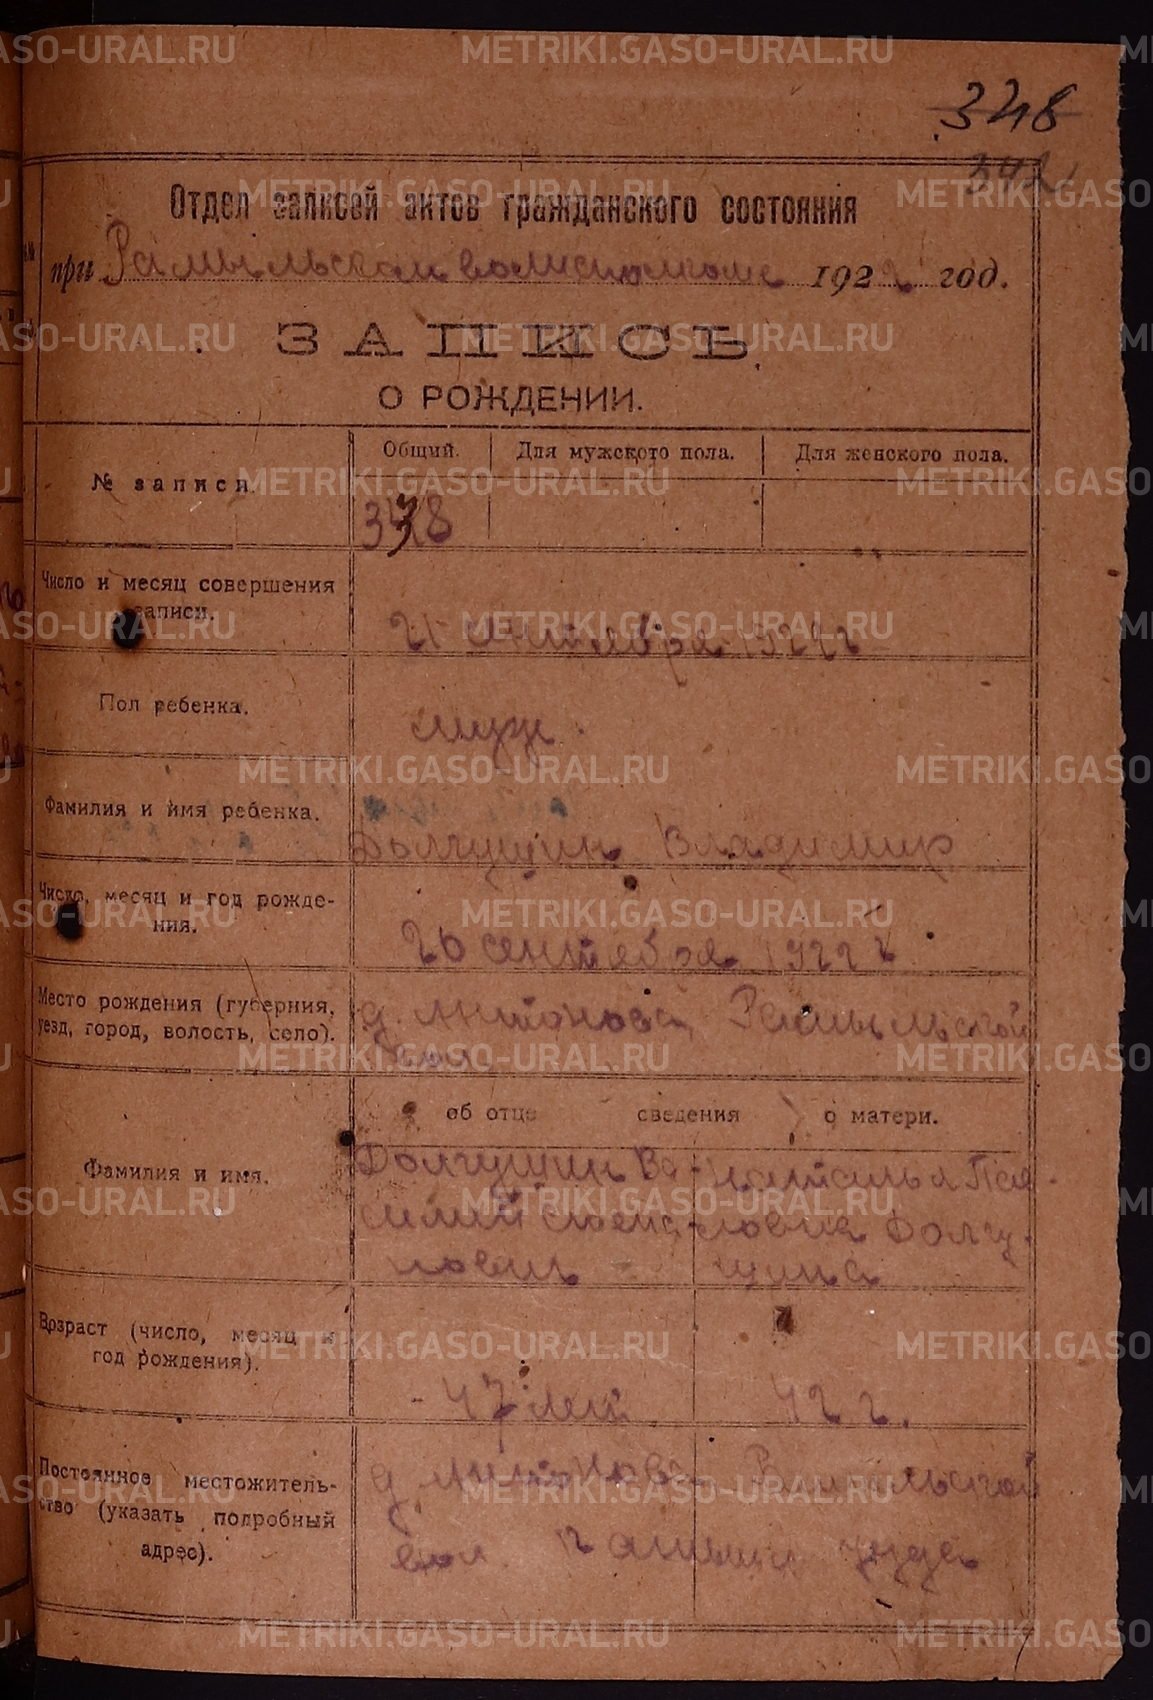 348
342
Отдел записей актов гражданского состояния
при Рамыльском волисполкоме 1922 год.
ЗАПИСЬ
О РОЖДЕНИИ.
№ записи.
Общий.
Для мужского пола.
Для женского пола.
Число и месяц совершения
записи.
21 сентября 1922 г
Пол ребенка.
муж.
Фамилия и имя ребенка.
Долгушин Владимир
Число, месяц и год рожде-
ния.
20 сентября 1922 г
Место рождения (губерния,
уезд, город, волость, село).
д. Антонова, Рамыльской
вол.
об отце сведения о матери.
Фамилия и имя.
Долгушин Ва-
силий
нович
Наталья
ловна Долгу-
шина
Возраст (число, месяц и
год рождения).
47 лет
42 г.
Постоянное местожитель-
ство (указать подробный
адрес).
д. Антонова Рамыльской
вол. уезда
METRIKI.GASO-URAL.RU